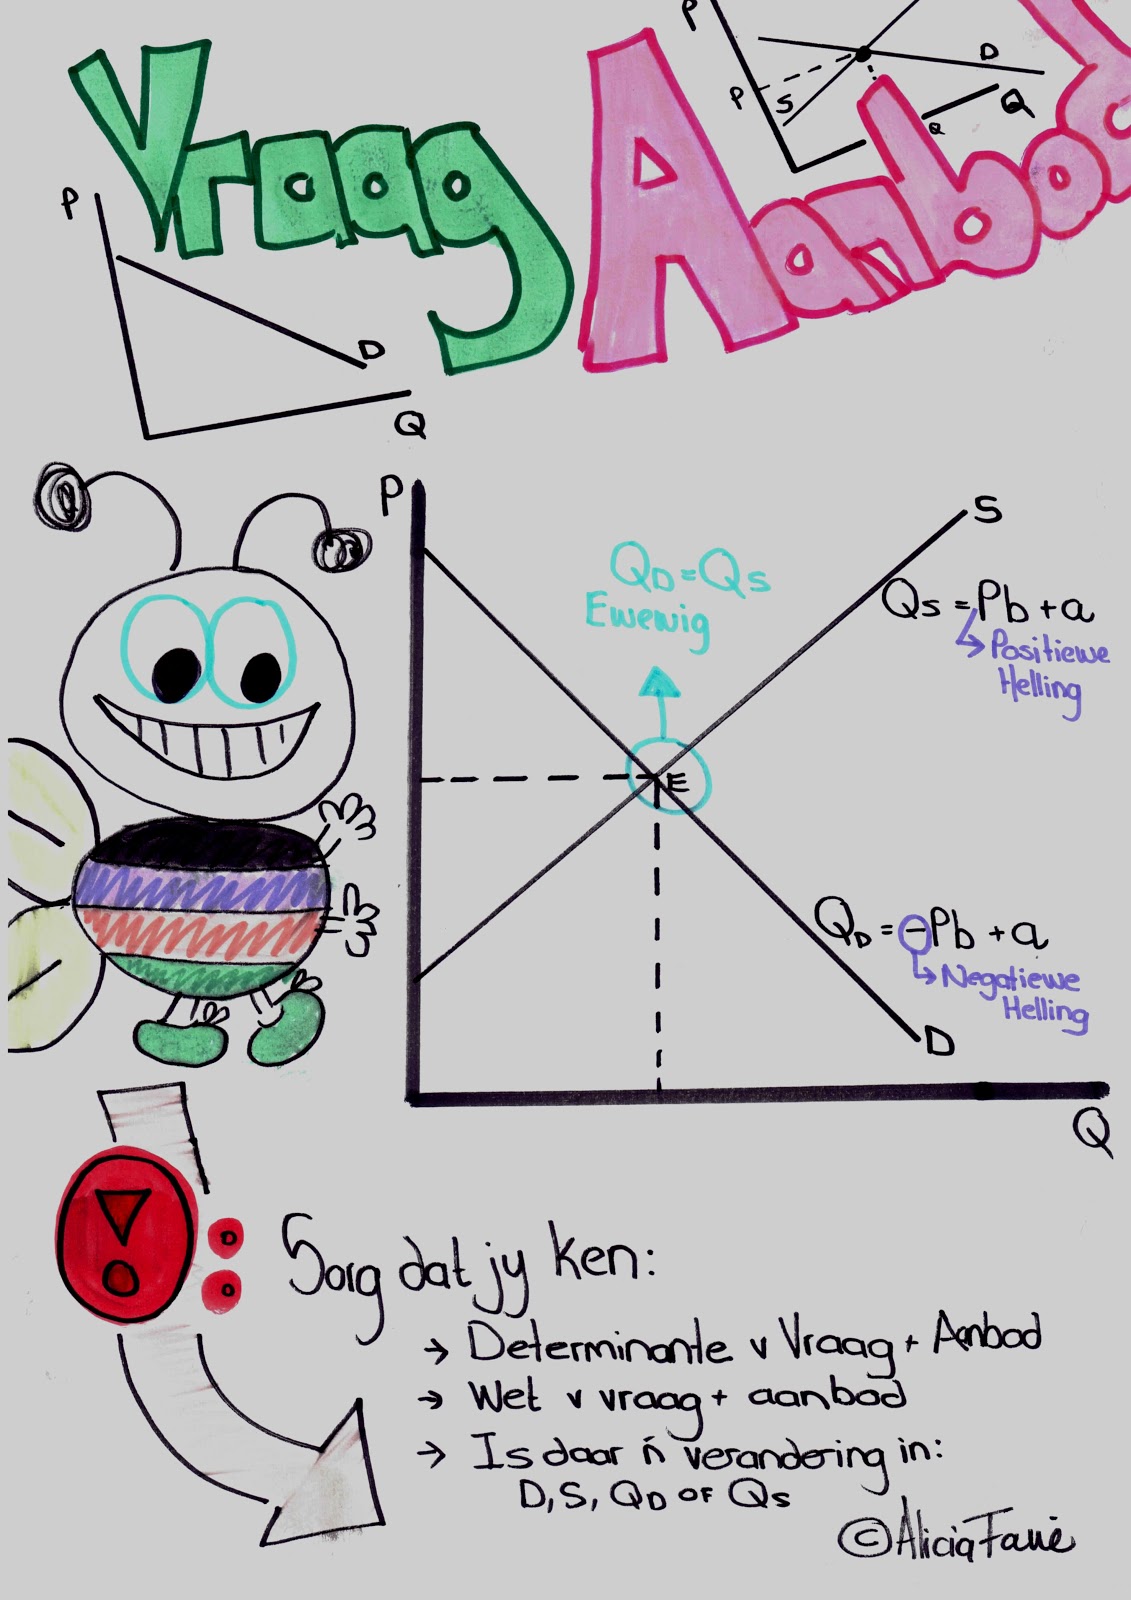 Vraag
Aanbod
P
D
Q
P
P
S
D
Q
Q
P
S
QD = QS
Ewewig
QS = Pb + a
Positiewe
Helling
E
QD = -Pb + a
Negatiewe
Helling
D
Q
Sorg dat jy ken:
→ Determinante v Vraag + Aanbod
→ Wet v vraag + aanbod
→ Is daar ń verandering in:
D, S, QD OF QS